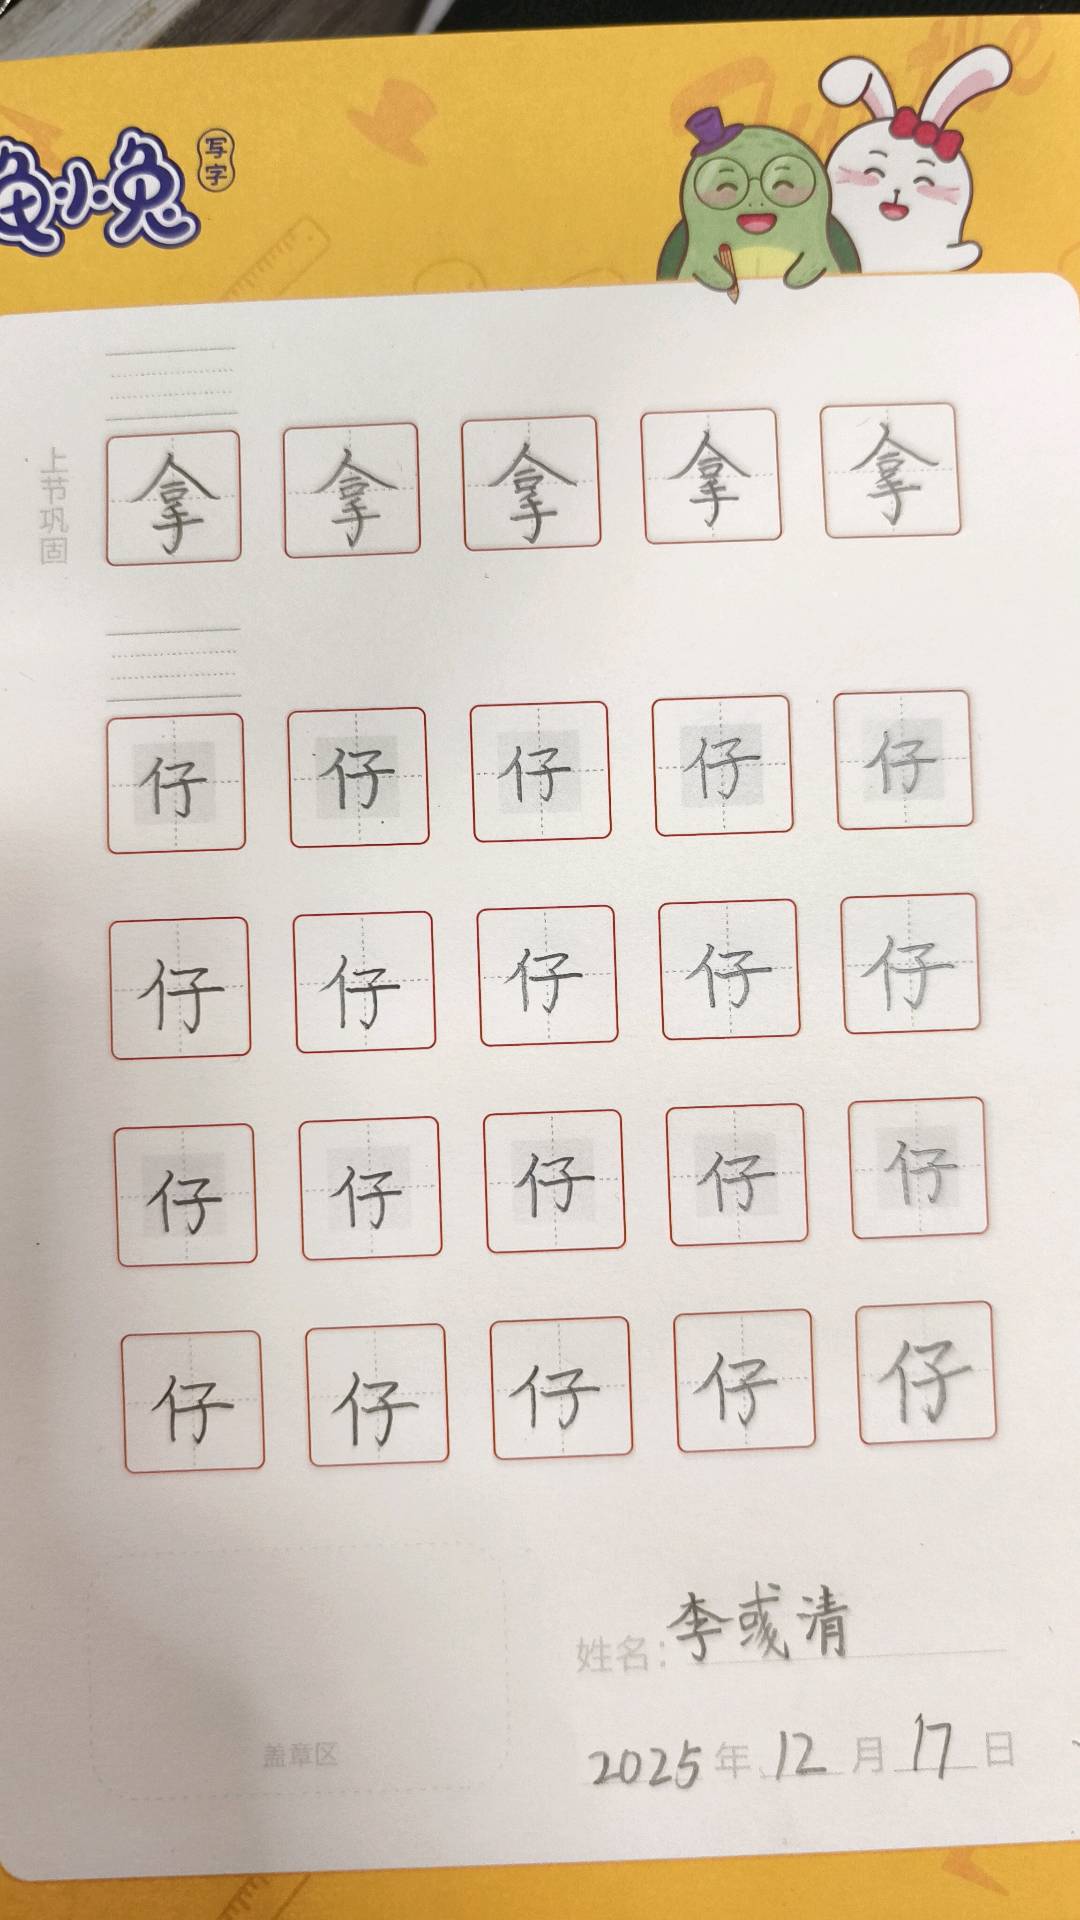 小兔
写字
上节巩固
拿 拿 拿 拿 拿
仔 仔 仔 仔 仔
仔 仔 仔 仔 仔
仔 仔 仔 仔 仔
仔 仔 仔 仔 仔
姓名：李彧清
盖章区
2025年12月17日